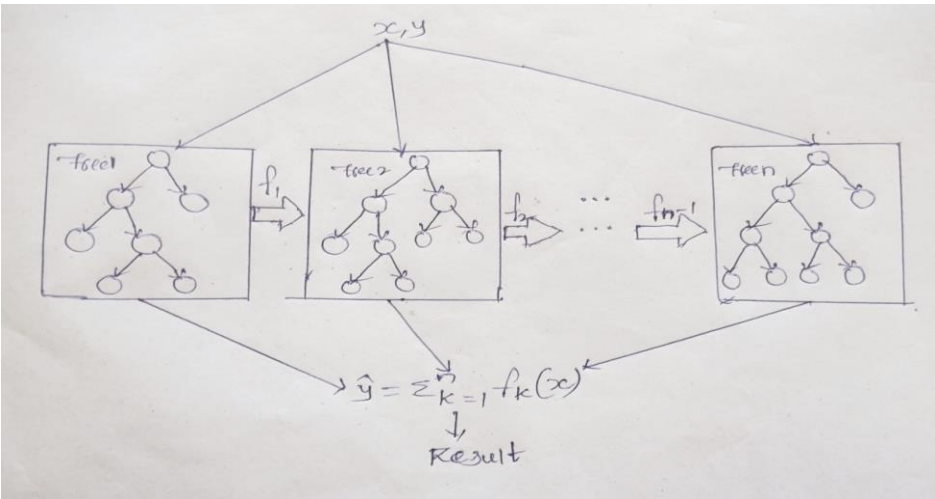 x, y
tree1
f₁
tree2
f₂
...
...
fₙ₋₁
treen
ŷ = Σⁿₖ₌₁ fₖ(x)
Result